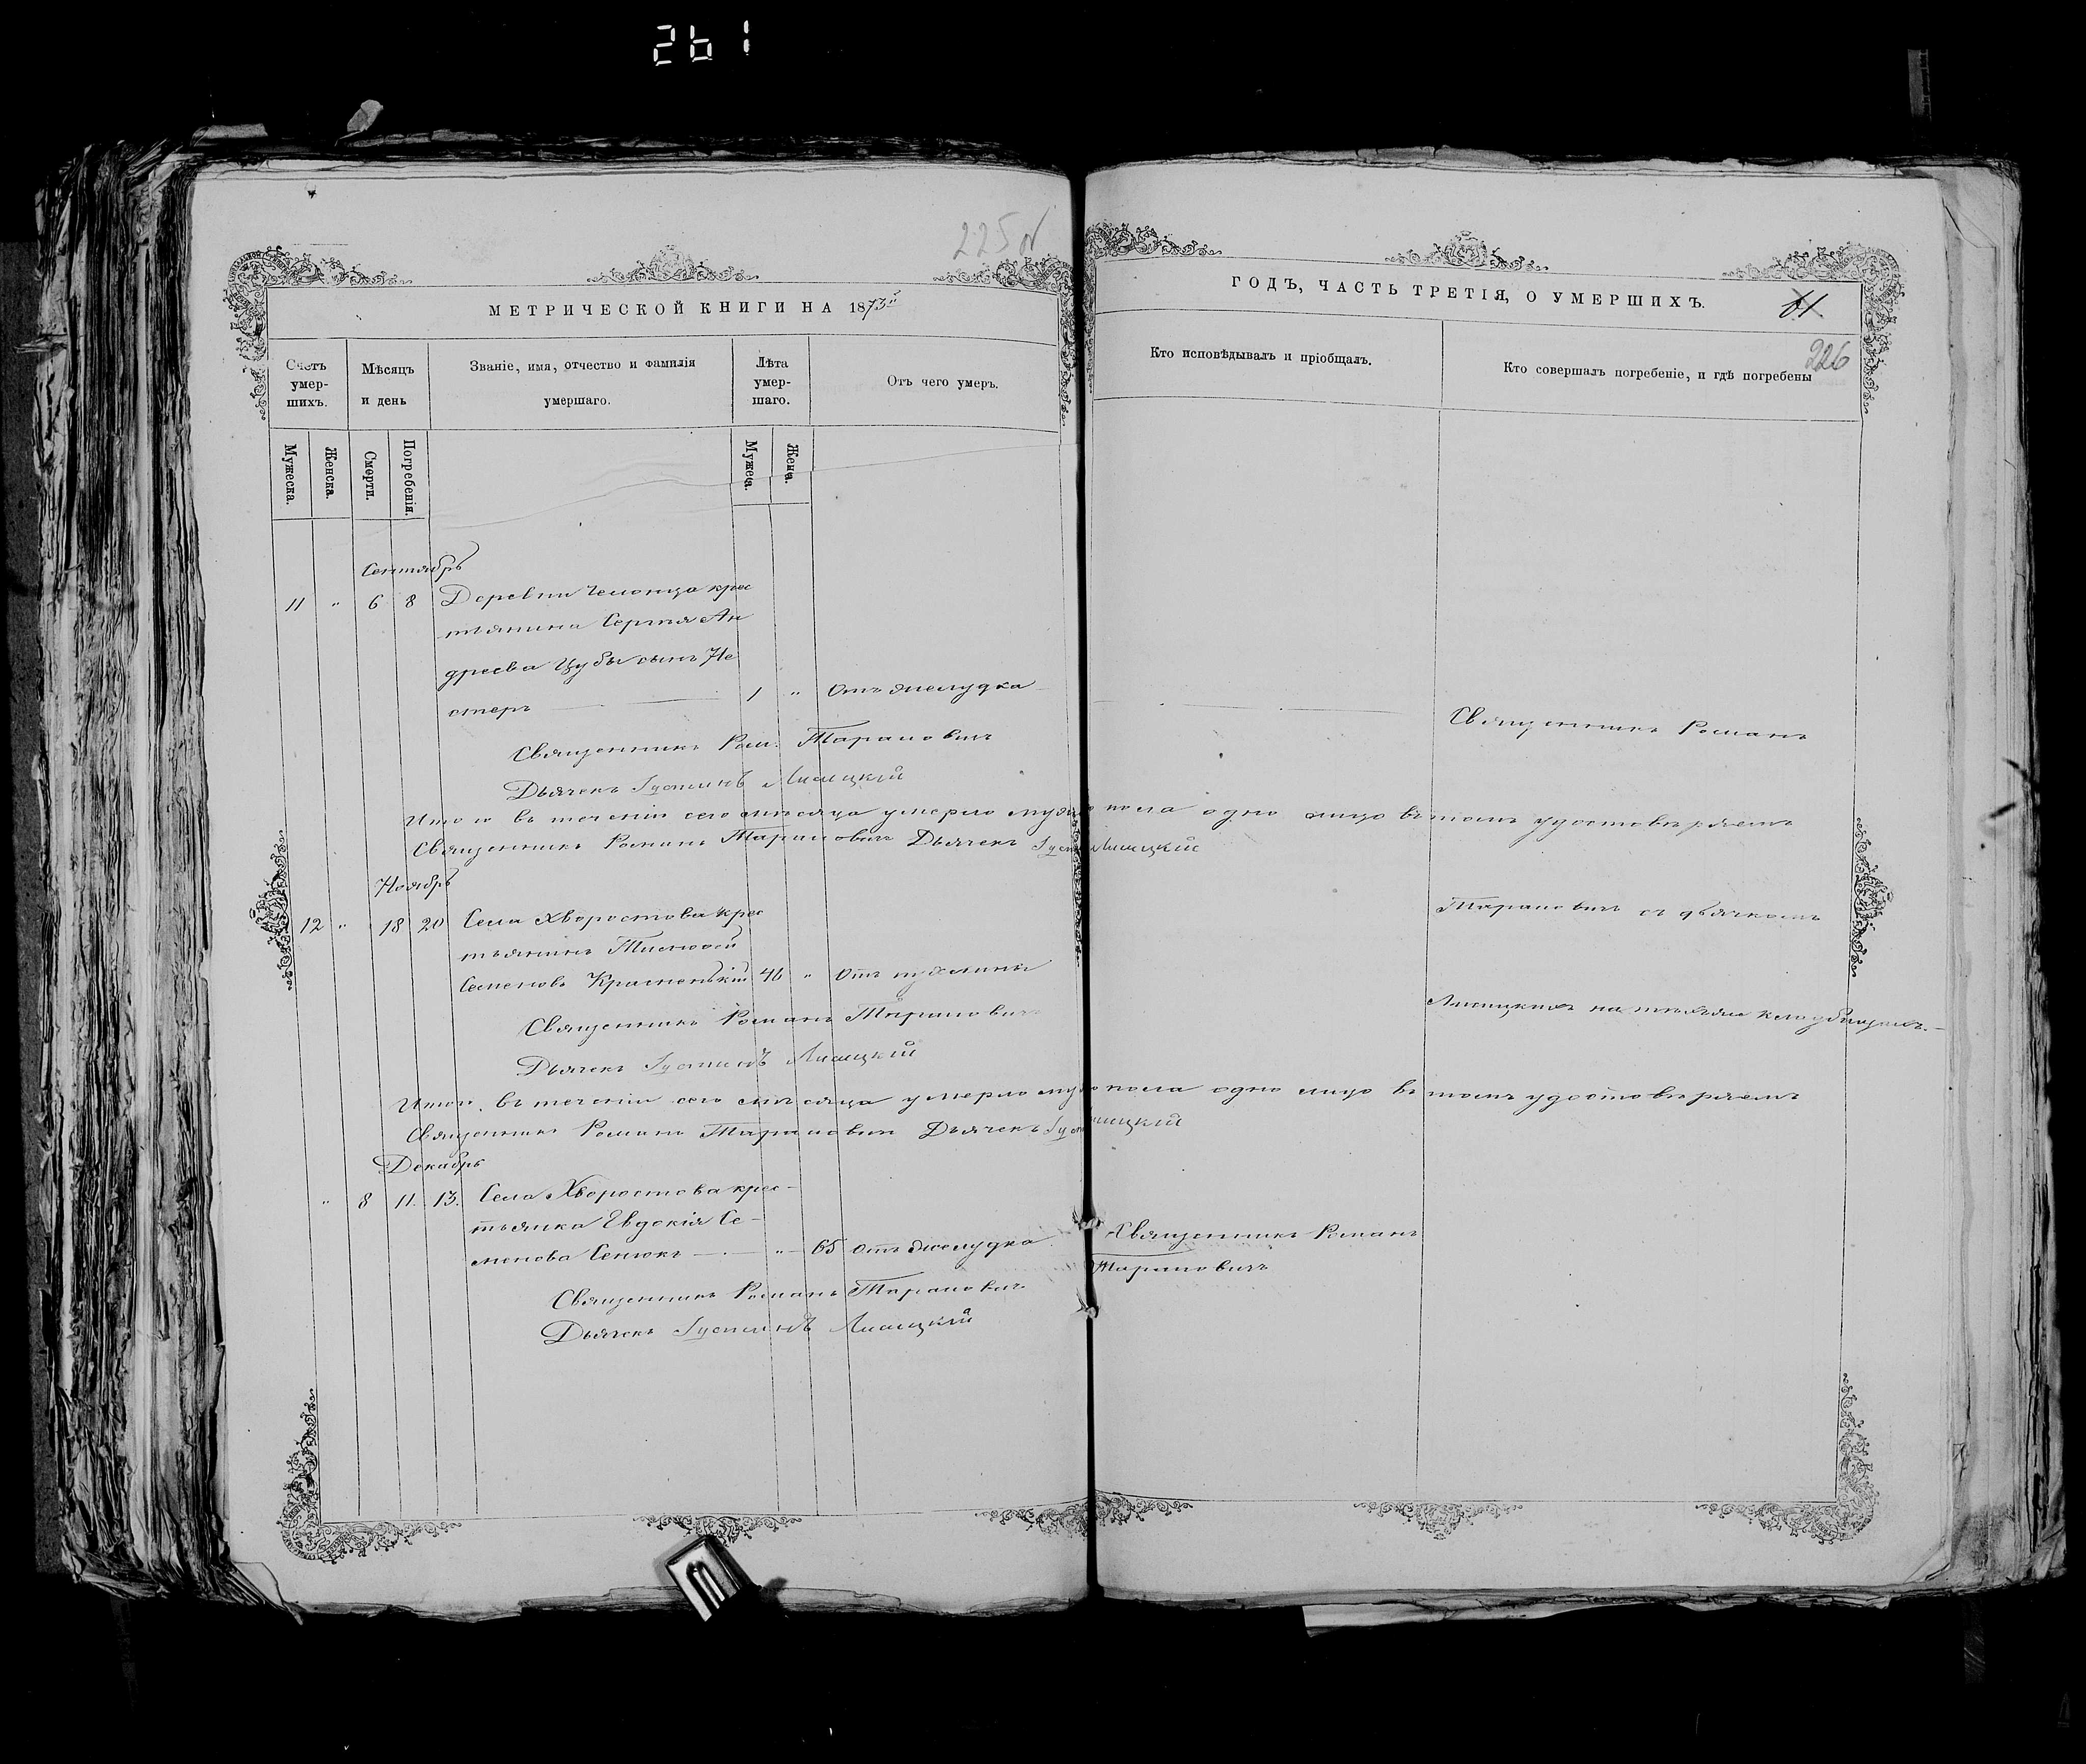 261
225 об
МЕТРИЧЕСКОЙ КНИГИ НА 1873й
Счетъ умер-шихъ.
Мѣсяцъ и день
Званіе, имя, отчество и фамилія умершаго.
Лѣта умер-шаго.
Отъ чего умеръ.
Мужеска.
Женска.
Смерти.
Погребенія.
Мужеск.
Женс.
Сентябрь
11 " 6 8 Деревни крес
тьянина Сергія Ан
дреева Цубы сынъ Не
стеръ 1 " Отъ желудка
Священникъ Ром. Тарановичъ
Дьячекъ Іустинъ Лисицкій
Итого въ теченіи сего мѣсяца умерло муж пола одно лицо въ томъ удостовѣряемъ
Священникъ Романъ Тарановичъ Дьячекъ Іуст Лисицкій
Ноябрь
12 " 18 20 Села Хворостова крес
тьянинъ Тимофей
Семеновъ 46 " Отъ пухлины
Священникъ Романъ Тарановичъ
Дьячекъ Іустинъ Лисицкій
Итого въ теченіи сего мѣсяца умерло муж пола одно лицо въ томъ удостовѣряемъ
Священникъ Романъ Тарановичъ Дьячекъ Іуст Лисицкій
Декабрь
" 8 11. 13. Села Хворостова крес-
тьянка Евдокія Се-
менова Сенюкъ " 65 Отъ желудка
Священникъ Романъ Тарановичъ
Дьячекъ Іустинъ Лисицкій
ГОДЪ, ЧАСТЬ ТРЕТІЯ, О УМЕРШИХЪ.
61
226
Кто исповѣдывалъ и пріобщалъ.
Кто совершалъ погребеніе, и гдѣ погребены
Священникъ Романъ
Тарановичъ съ дьячкомъ
Лисицкимъ на кладбищахъ.
Священникъ Романъ
Тарановичъ